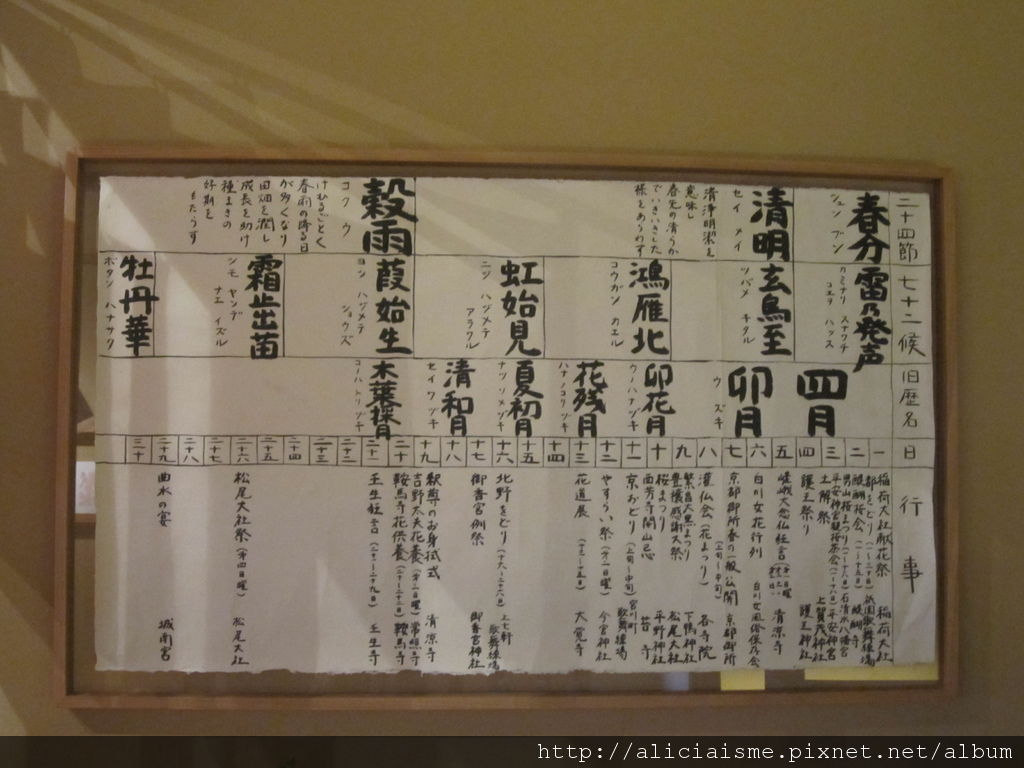 二十四節
七十二候
旧歴名
日
行事
春分
シュン ブン
清明
セイ メイ
清浄明潔を
意味し
春先の清らか
でいきいきした
様をあらわす
穀雨
コク ウ
けむるごとく
春雨の降る日
が多くなり
田畑を潤し
成長を助け
種まきの
好期を
もたらす
雷乃発声
カミナリ スナワチ
コエヲ ハッス
玄鳥至
ツバメ キタル
鴻雁北
コウガン カエル
虹始見
ニジ ハジメテ
アラワル
葭始生
ヨシ ハジメテ
ショウズ
霜止出苗
シモ ヤンデ
ナエ イズル
牡丹華
ボタン ハナサク
四月
卯月
ウ ズキ
卯花月
ウノハナヅキ
花残月
ハナノコリヅキ
夏初月
ナツソメヅキ
清和月
セイワヅキ
木葉採月
コノハトリヅキ
一
二
三
四
五
六
七
八
九
十
十一
十二
十三
十四
十五
十六
十七
十八
十九
二十
二十一
二十二
二十三
二十四
二十五
二十六
二十七
二十八
二十九
三十
稲荷大社献花祭 稲荷大社
都をどり(一〜三十日) 祇園歌舞練場
醍醐桜会 醍醐寺
男山桜まつり 石清水八幡宮
平安神宮観桜茶会 平安神宮
土解祭 上賀茂神社
護王祭り 護王神社
嵯峨大念仏狂言 清凉寺
白川女花行列 白川女風俗保存会
京都御所春の一般公開 京都御所
灌仏会(花まつり) 各寺院
繁昌大黒まつり 下鴨神社
豊穣感謝大祭 松尾大社
桜まつり 平野神社
西芳寺開山忌 苔寺
京おどり(上旬〜中旬) 宮川町歌舞練場
やすらい祭(第二日曜) 今宮神社
花道展(十三〜十五日) 大覚寺
北野をどり 上七軒歌舞練場
御香宮例祭 御香宮神社
釈尊のお身拭式 清凉寺
吉野太夫花供養(第三日曜) 常照寺
鞍馬寺花供養 鞍馬寺
壬生狂言(二十一〜二十九日) 壬生寺
松尾大社祭(第四日曜) 松尾大社
曲水の宴 城南宮
http://aliciaisme.pixnet.net/album